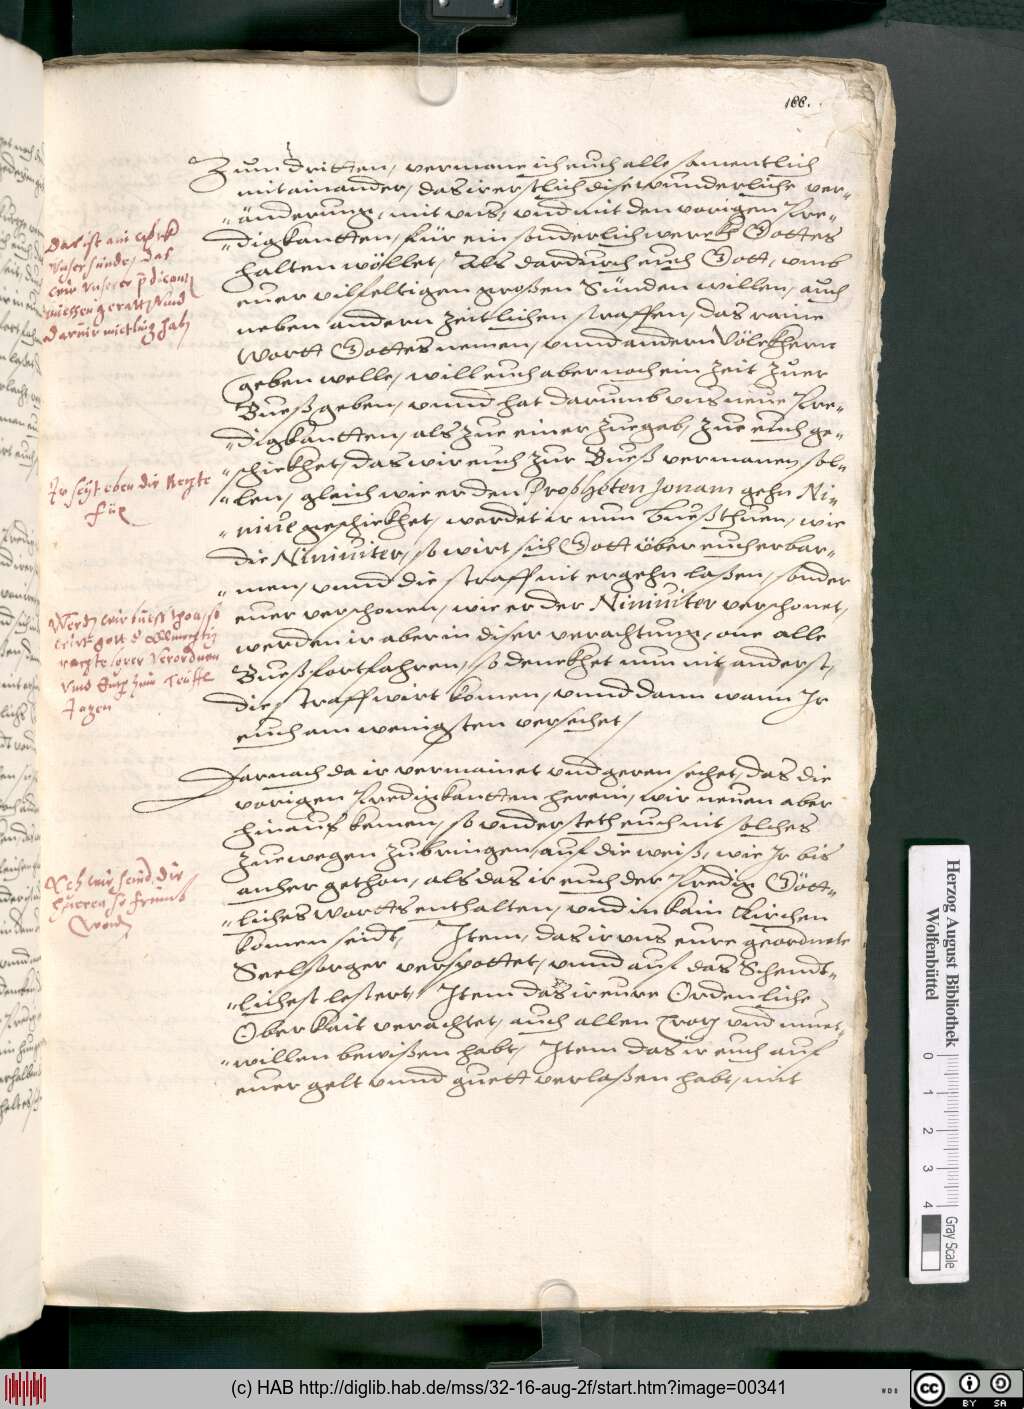 188.
Zum dritten, vermane ich euch alle samentlich
mitainander, das ir erstlich dise wunderliche ver-
änderung, mit uns, und mit den vorigen Pre-
digkantten, für ein sonderlich werckh Gottes
halten wöllet, Als dardurch euch Gott, umb
euer vilfeltigen großen Sünden willen, auch
neben andern zeitlichen straffen, das raine
Wortt Gottes nemen, unnd andern Völckhern
geben welle, will euch aber noch ein zeit zuer
Bueß geben, unnd hat darumb uns neue Pre-
digkantten, als zue einer zuegab, zue euch ge-
schickhet, das wir euch zur Bueß vermanen sol-
len, gleich wie er den Propheten Jonam gehn Ni-
nive geschickhet, werdet ir nun bueß thuen, wie
die Niniviter, so wirt sich Gott über euch erbar-
men, unnd die straff nit ergehn laßen, sonder
euer verschonen, wie er der Niniviter verschonet,
werden ir aber in diser verachtung, one alle
Bueß fortfahren, so denckhet nun nit anderst,
die straff wirt komen, unnd dann wann Ir
euch am wenigsten versehet,
Darnach da ir vermainet und geren sehet, das die
vorigen Predigkantten herein, wir neuen aber
hinauß kemen, so understeth euch nit solches
zuewegen zubringen, auf die weiß, wie Ir bis
anher gethon, als das ir euch der Predig Gött-
liches Worts enthalten, und in kain Kirchen
komen seidt, Item, das ir uns eure geordnete
Seelsorger verspottet, unnd auf das Schendt-
lichest lestert, Item das ir eure Ordenliche
Oberkait verachtet, auch allen Trotz und muet-
willen bewißen habt, Item das ir euch auf
euer gelt unnd guett verlaßen habt, mit
das ist ain
unser sünde, das
wir unserer
miessen geratten und
Ir seyt eben die Rechte
für
Werden wir buess thon, so
wirt gott d Allmechtig
rechte lerer verordnen
und Euch zum teüffl
Jagen
Ach wir seind die
hueren so frumb
Worden
Herzog August Bibliothek
Wolfenbüttel
0 1 2 3 4
Gray Scale
(c) HAB http://diglib.hab.de/mss/32-16-aug-2f/start.htm?image=00341
WDB
cc BY SA